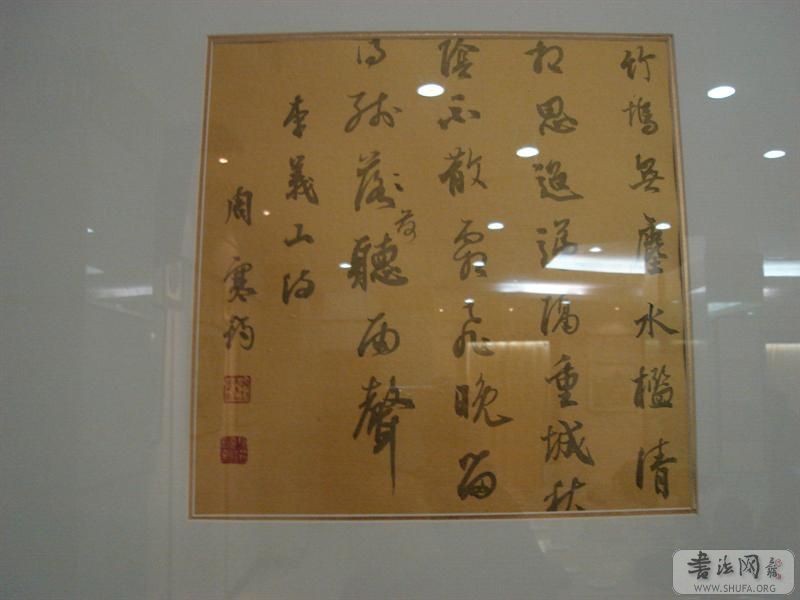 竹塢無塵水檻清
相思迢遞隔重城秋
陰不散霜飛晚留
得殘落荷聽雨聲
李義山詩
周
書法网
WWW.SHUFA.ORG